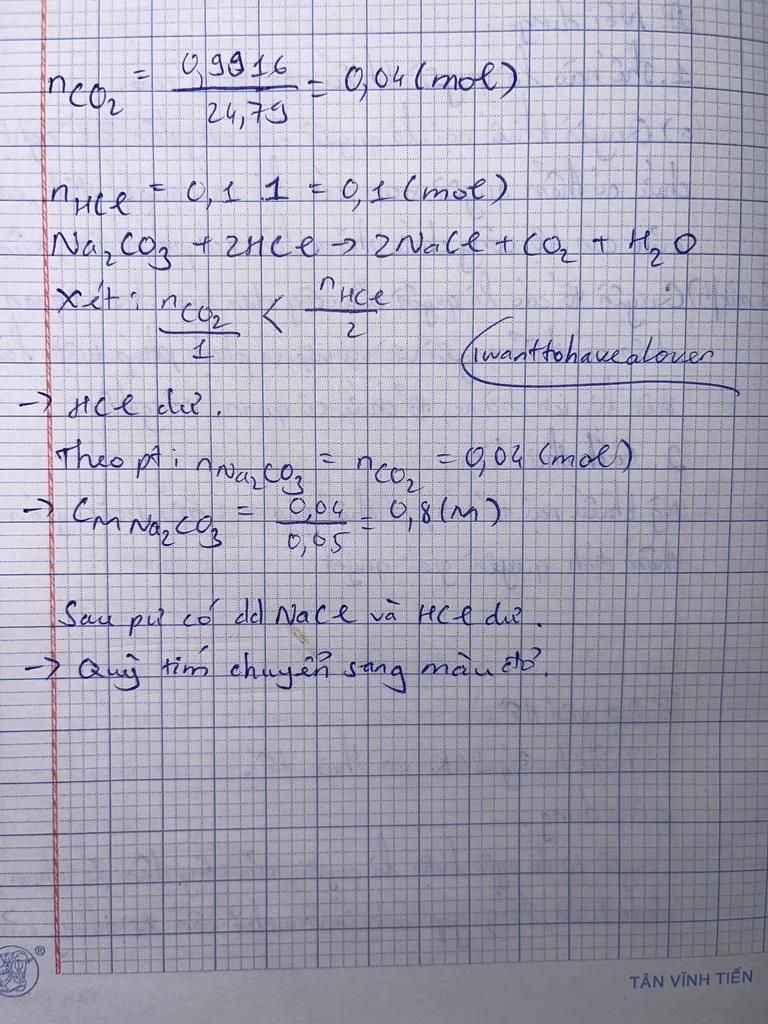 nCO₂ = 0,9916/24,79 = 0,04 (mol)
nHCl = 0,1 . 1 = 0,1 (mol)
Na₂CO₃ + 2HCl → 2NaCl + CO₂ + H₂O
Xét: nCO₂/1 < nHCl/2
iwanttohavealover
→ HCl dư.
Theo pt: nNa₂CO₃ = nCO₂ = 0,04 (mol)
→ CM Na₂CO₃ = 0,04/0,05 = 0,8 (M)
Sau pư có dd NaCl và HCl dư.
→ Quỳ tím chuyển sang màu đỏ.
®
TÂN VĨNH TIẾN